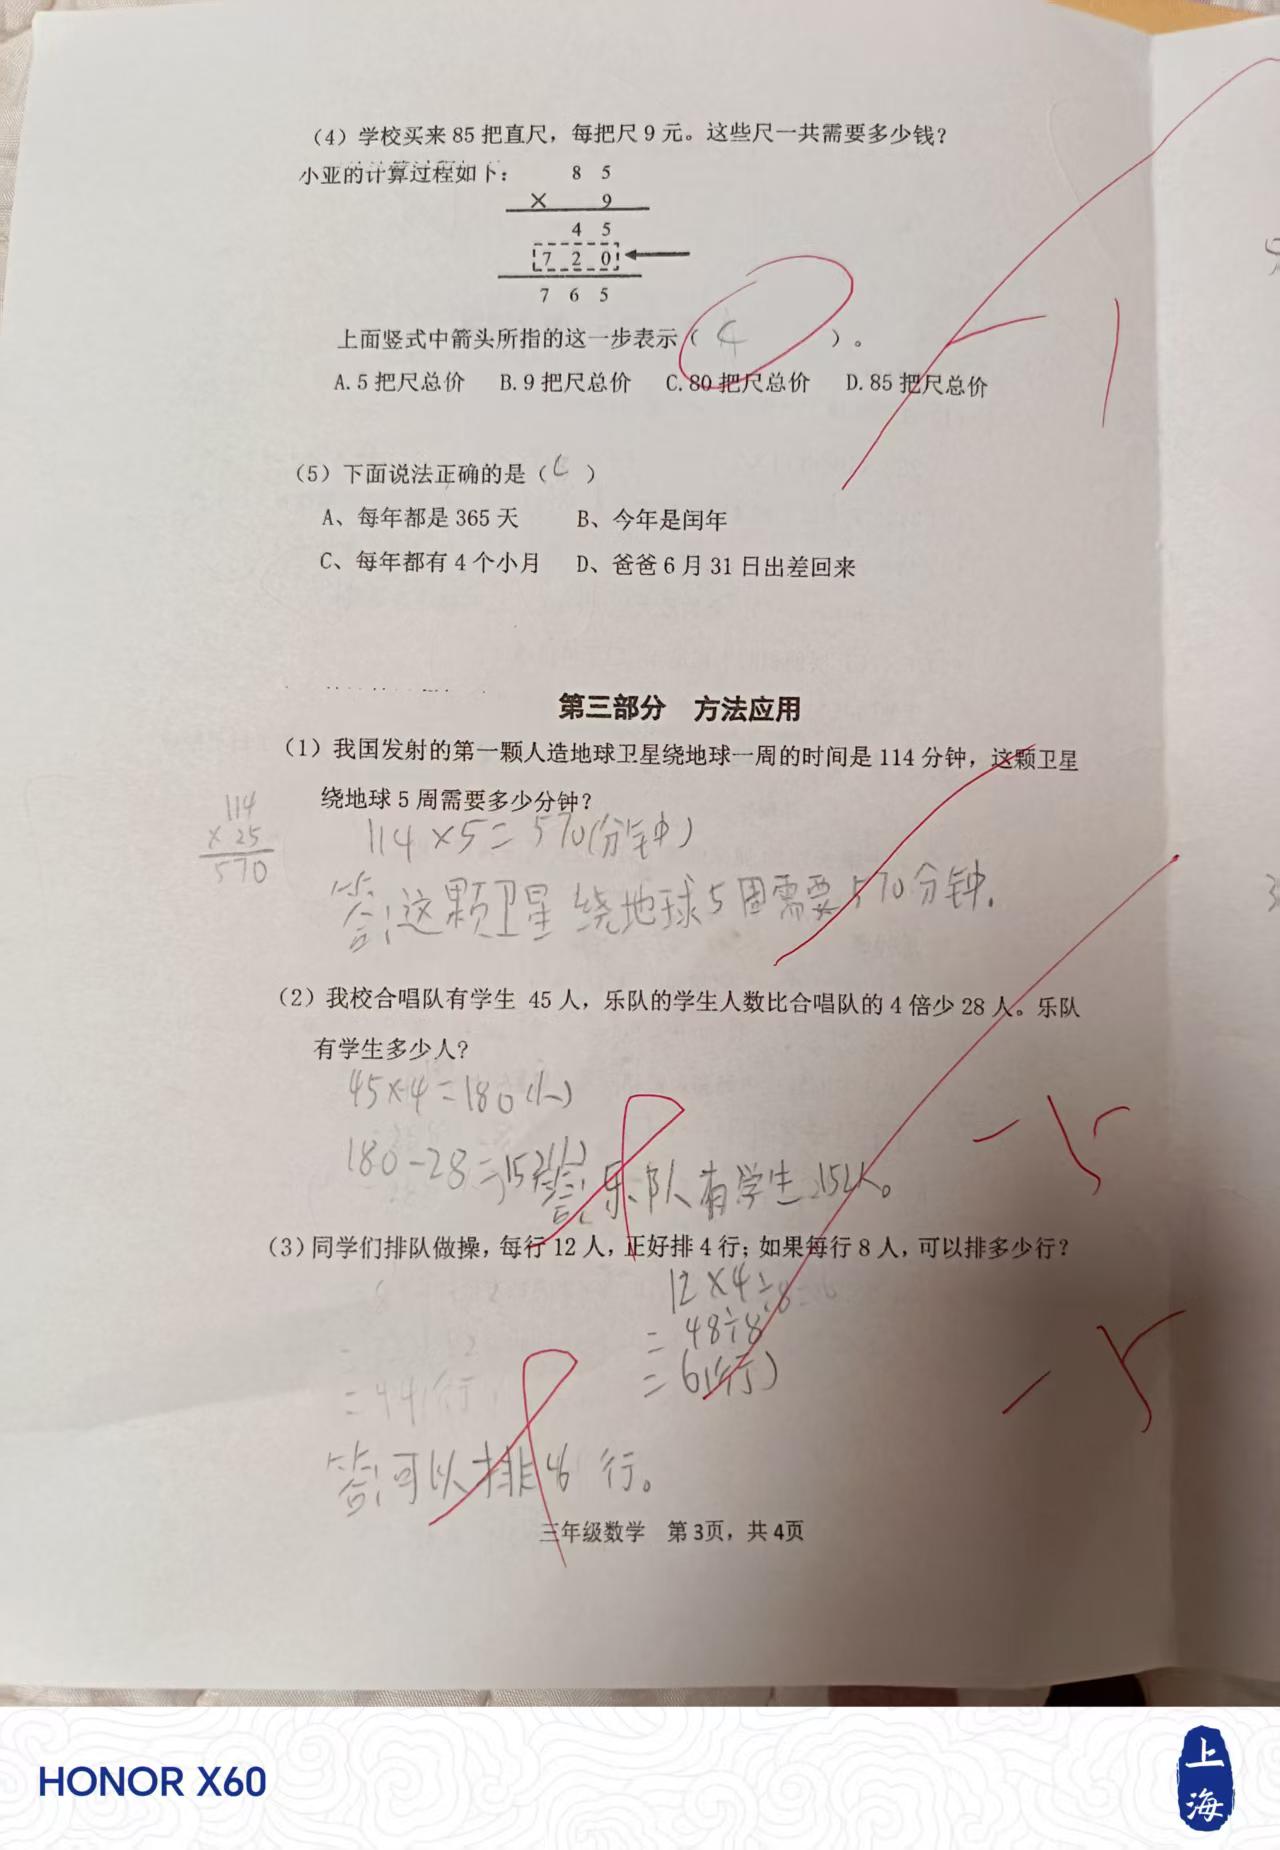 (4) 学校买来 85 把直尺，每把尺 9 元。这些尺一共需要多少钱？
小亚的计算过程如下：
8 5
× 9
4 5
7 2 0
7 6 5
-1
上面竖式中箭头所指的这一步表示（ ）。
A.5 把尺总价 B.9 把尺总价 C.80 把尺总价 D.85 把尺总价
(5) 下面说法正确的是（C）
A、每年都是 365 天 B、今年是闰年
C、每年都有 4 个小月 D、爸爸 6 月 31 日出差回来
第三部分 方法应用
(1) 我国发射的第一颗人造地球卫星绕地球一周的时间是 114 分钟，这颗卫星
绕地球 5 周需要多少分钟？
114
× 25
570
114×5=570(分钟)
答:这颗卫星绕地球5周需要570分钟.
(2) 我校合唱队有学生 45 人，乐队的学生人数比合唱队的 4 倍少 28 人。乐队
有学生多少人？
45×4=180(人)
180-28=152(人)
答:乐队有学生152人。
-5
(3) 同学们排队做操，每行 12 人，正好排 4 行；如果每行 8 人，可以排多少行？
12×4÷8
=48÷8
=6(行)
-5
答:可以排 6 行。
三年级数学 第 3页，共 4页
HONOR X60
上海